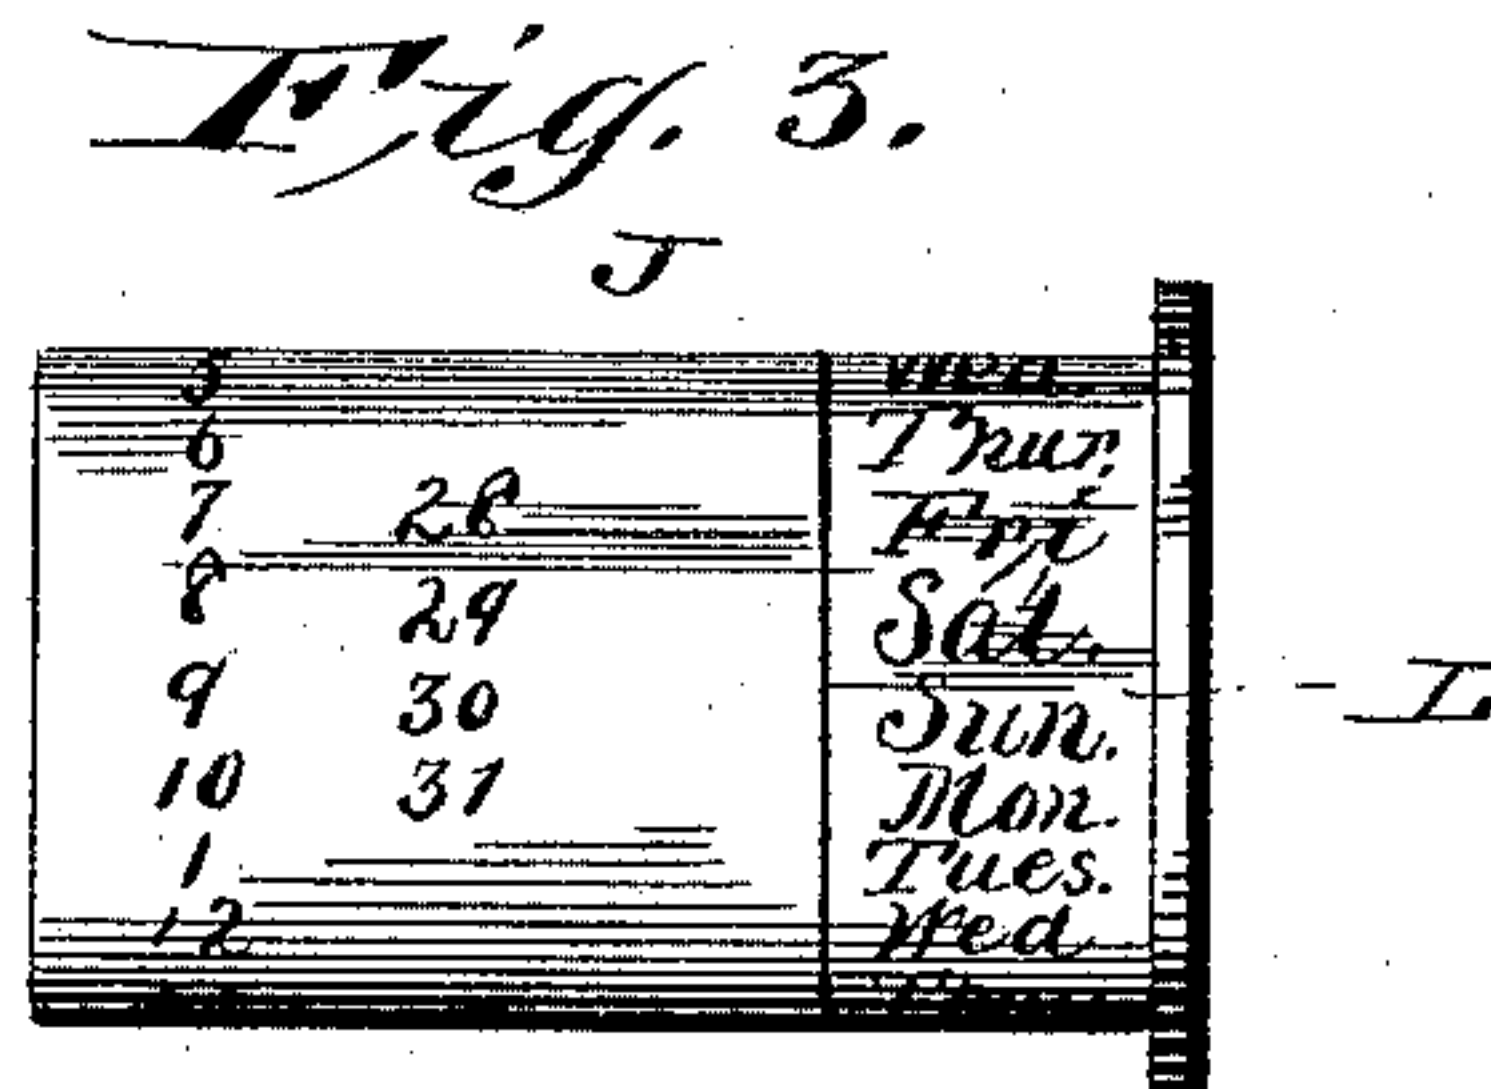 Fig. 3.
J
5 Wed
6 Thur.
7 28 Fri
8 29 Sat.
9 30 Sun.
10 31 Mon.
1 Tues.
12 Wed
L